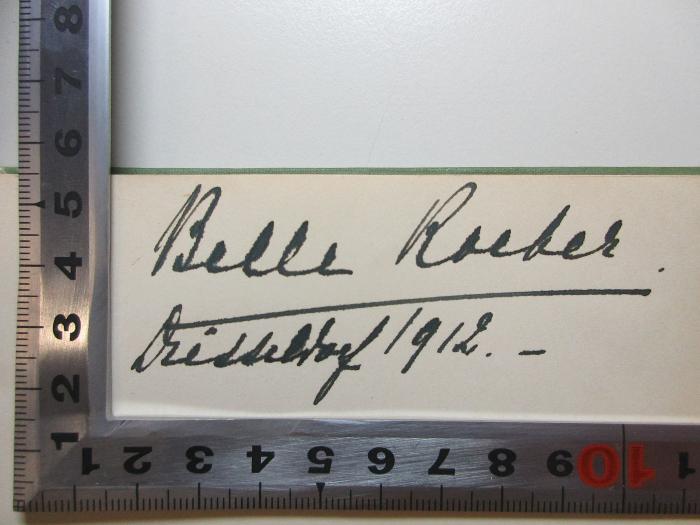 Belle Roeber.
Düsseldorf 1912. –
8
7
6
5
4
3
2
1
1 2 3 4 5 6 7 8 9 10 1